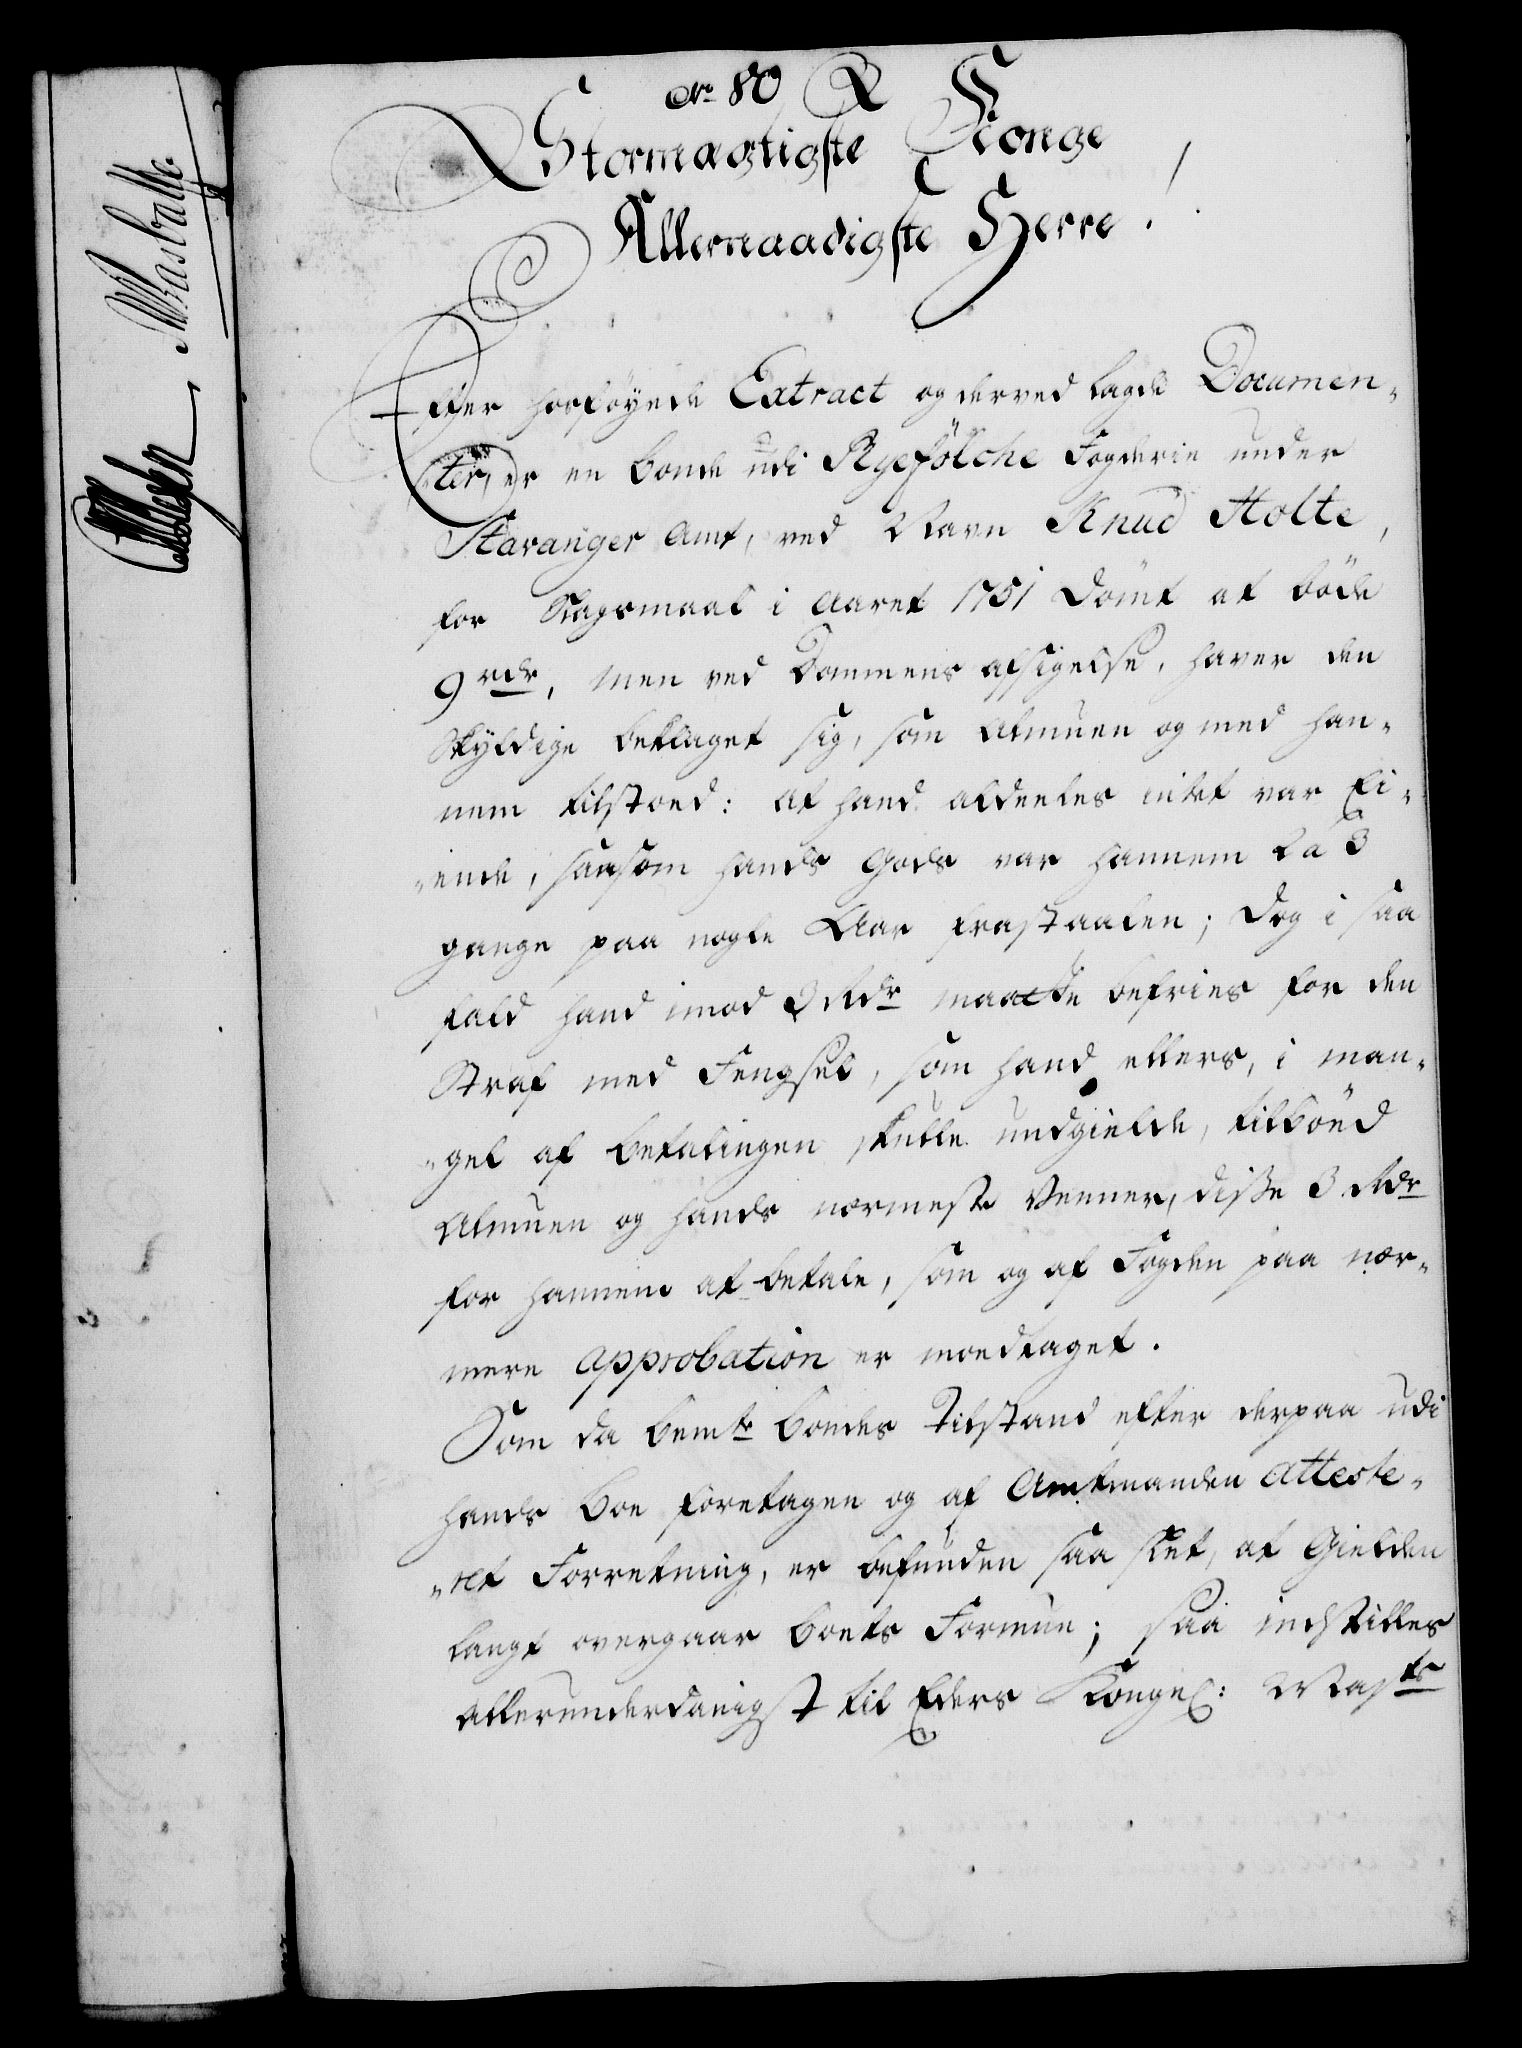 No 80
Stormægtigste Konge
Allernaadigste Herre!
Efter hosføyede Extract og derved lagde Documen-
ter, er en bonde udi Ryefölche Fogderie under
Stavanger Amt, ved Navn Knud Holte,
for Slagsmaal i Aaret 1751 dömt at böde
9 rdr, men ved Dommens afsigelse, haver den
skyldige beklaget sig, som Almuen og med han-
nem tilstoed: at hand aldeeles intet var Ei-
ende, saasom hands Gods var hannem 2 a 3
gange paa nogle Aar frastaalen; dog i saa
fald hand imod 3 Rdr maatte befries for den
Straf med Fengsel, som hand ellers, i man-
gel af betalingen skulle undgielde, tilböed
Almuen og hands nærmeste Venner, disse 3 Rdr
for hannem at betale, som og af Fogden paa nær-
mere approbation er modtaget.
Som da bemte bondes Tilstand efter derpaa udi
hands Boe foretagen og af Amtmanden Atteste-
ret Forretning, er befunden saa slet, at Gielden
langt overgaar boets Formue; saa indstilles
allerunderdanigst til Eders Kongel: Mayts